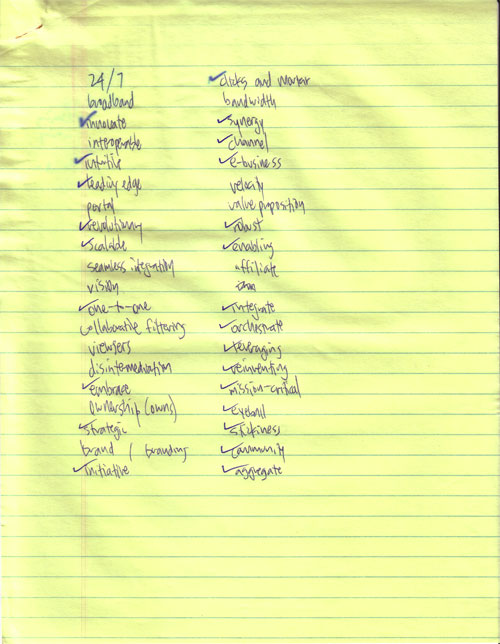 24/7
broadband
✓innovate
interoperable
✓intuitive
✓leading edge
portal
✓revolutionary
✓scalable
seamless integration
vision
✓one-to-one
collaborative filtering
viewsers
disintermediation
✓embrace
ownership (owns)
✓strategic
brand / branding
✓initiative
✓clicks and mortar
bandwidth
✓synergy
✓channel
✓e-business
velocity
value proposition
✓robust
✓enabling
affiliate
✓integrate
✓orchestrate
✓leveraging
✓reinventing
✓mission-critical
✓eyeball
✓stickiness
✓community
✓aggregate